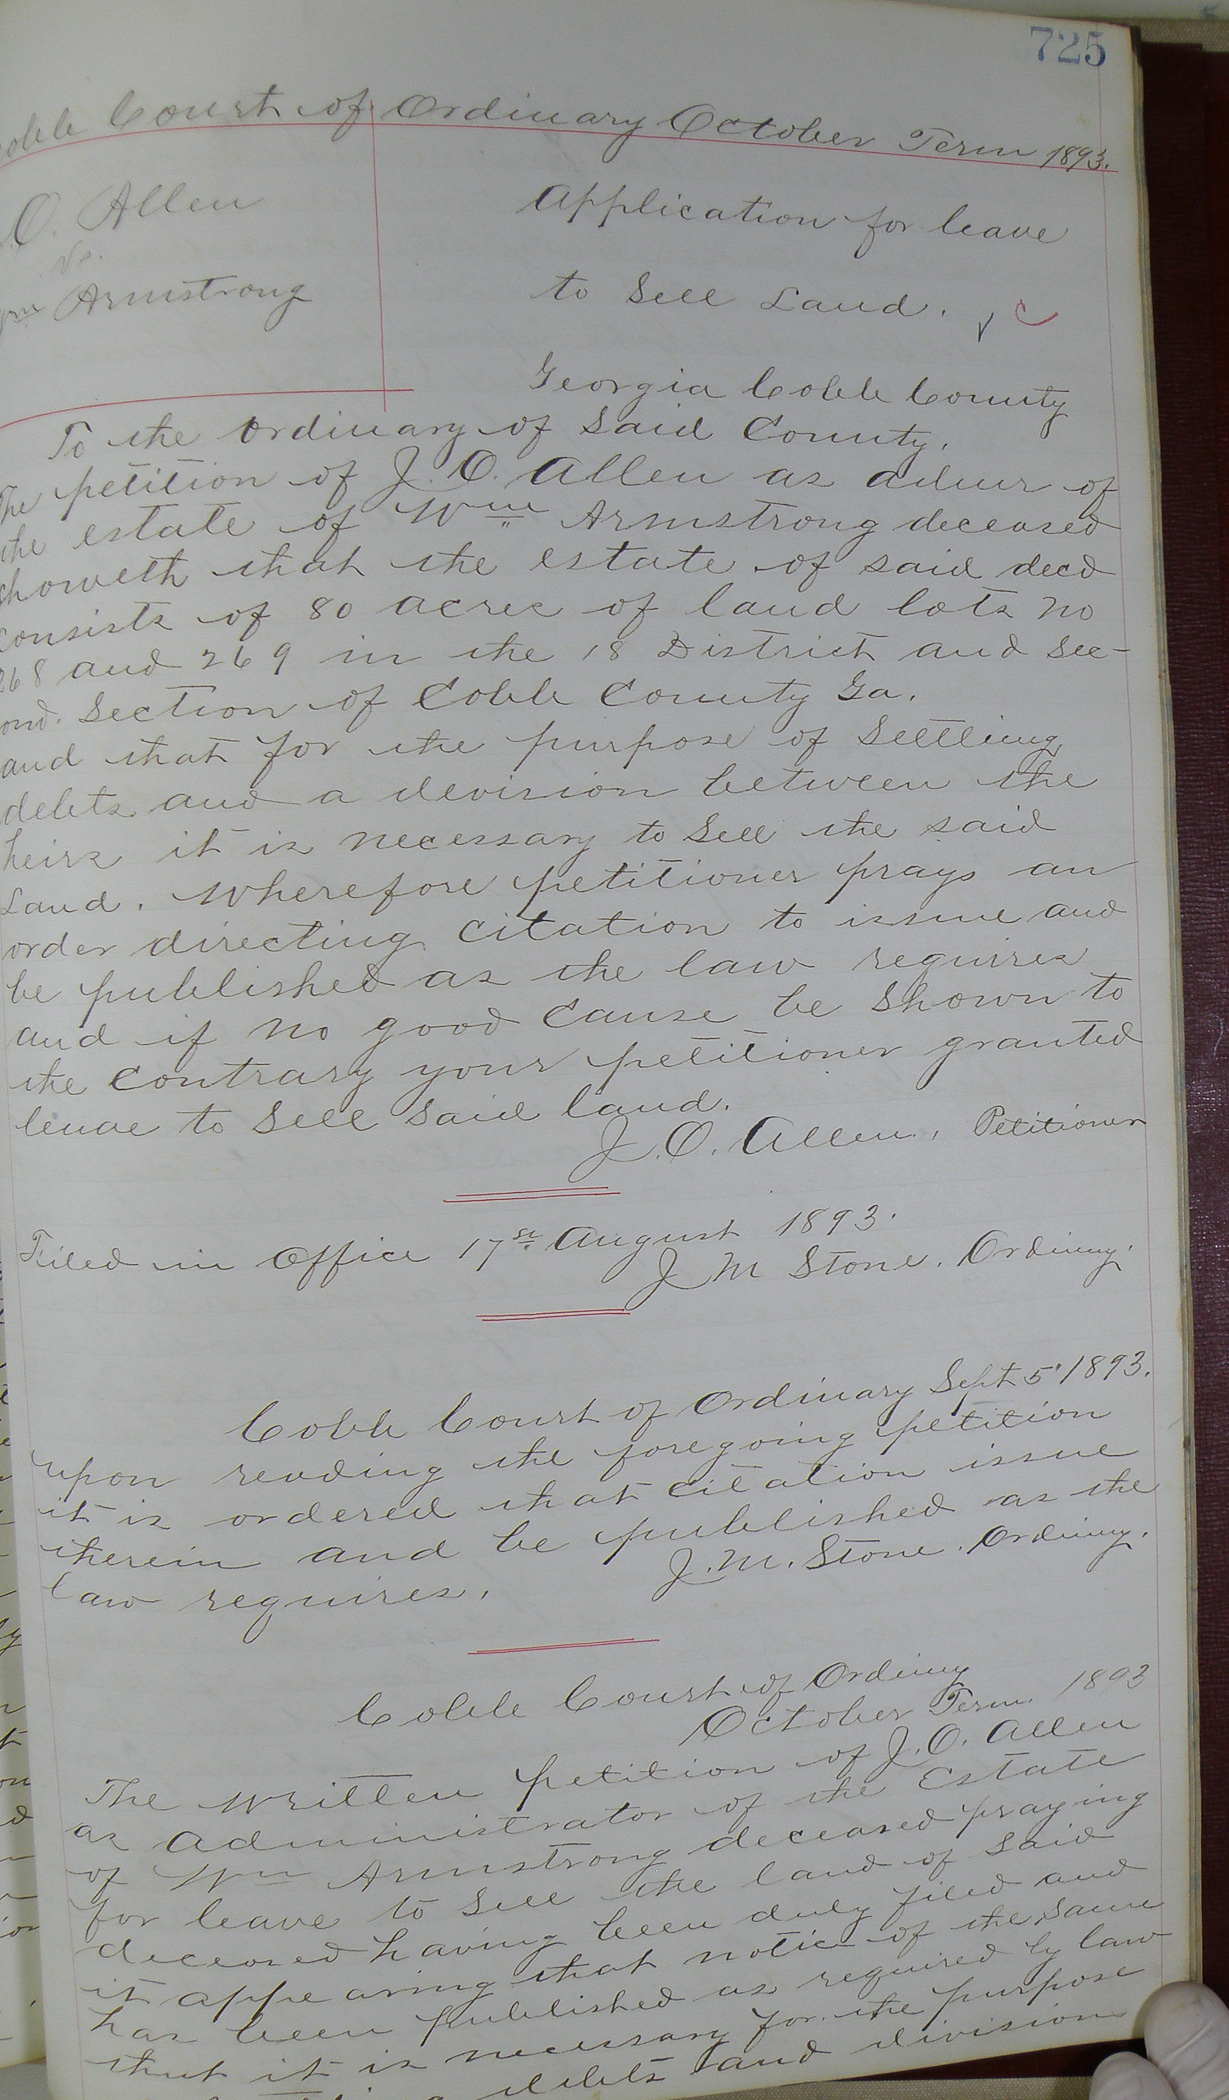 725
Cobb Court of Ordinary October Term 1893.
O. Allen
vs.
Wm Armstrong
Application for leave
to Sell Land.
Georgia Cobb County
To the Ordinary of Said County.
The petition of J. O. Allen as admr of
the estate of Wm Armstrong deceased
showeth that the estate of said decd
consists of 80 acres of land lots No
268 and 269 in the 18 District and Sec-
ond. Section of Cobb County Ga.
and that for the purpose of Settling
debts and a devision between the
heirs it is necessary to Sell the said
Land. Wherefore petitioner prays an
order directing citation to issue and
be published as the law requires
and if no good cause be Shown to
the Contrary your petitioner granted
leave to Sell Said land.
J. O. Allen, Petitioner
Filed in Office 17st August 1893.
J M Stone. Ordinry.
Cobb Court of Ordinary Sept 5' 1893.
upon reading the foregoing petition
it is ordered that citation issue
therein and be published as the
law requires.
J. M. Stone. Ordinry.
Cobb Court of Ordinry
October Term. 1893
The written petition of J. O. Allen
as administrator of the Estate
of Wm Armstrong deceased praying
for leave to Sell the land of Said
deceased having been duly filed and
it appearing that notice of the Same
has been published as required by law
that it is necessary for the purpose
debts and division